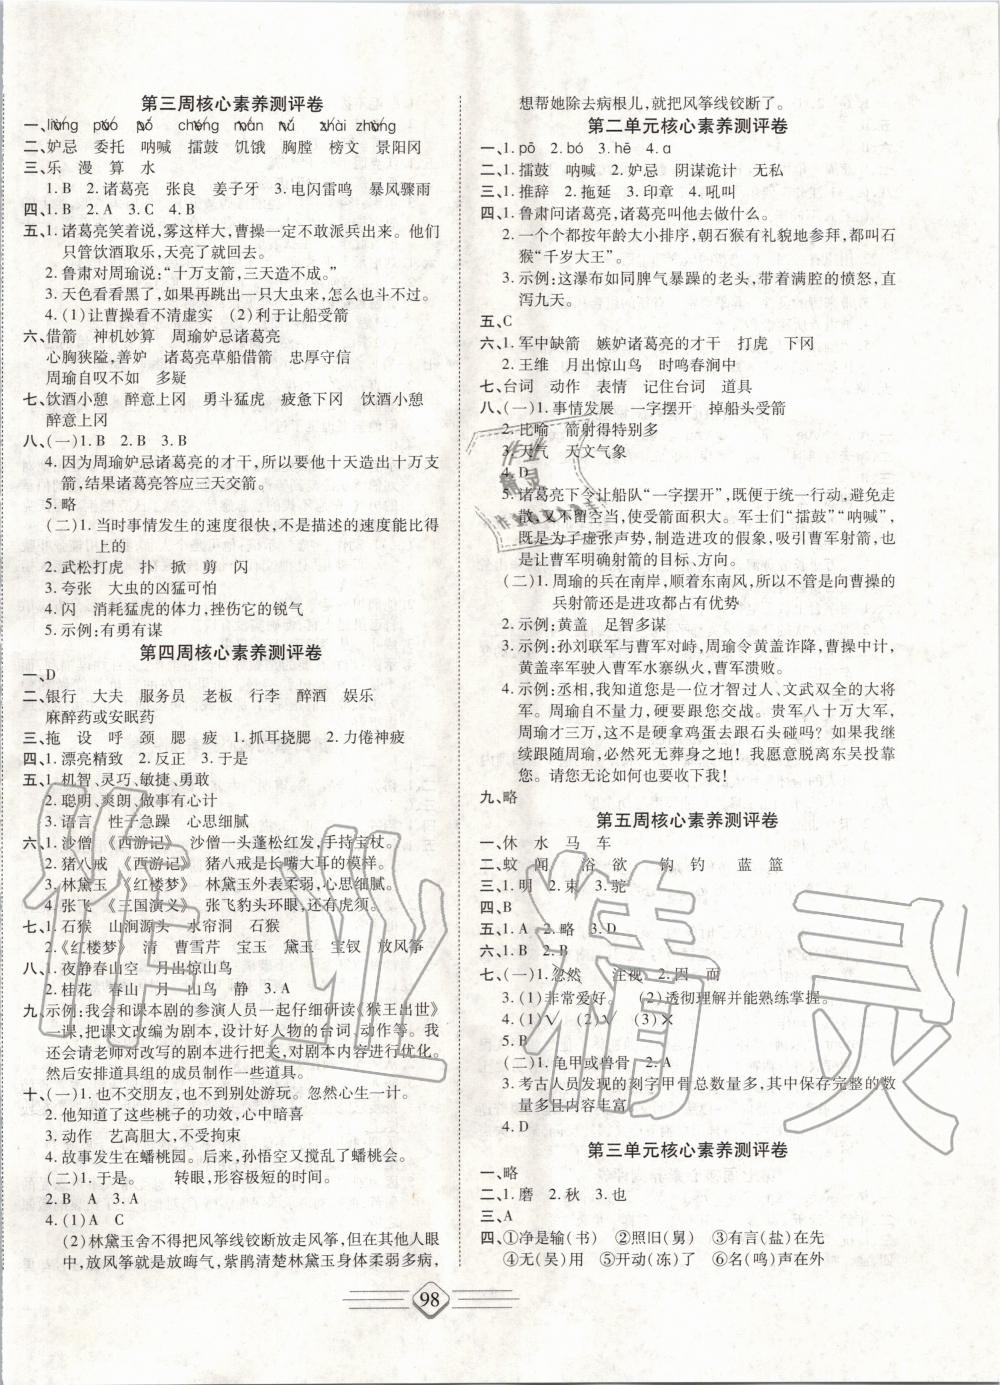 第三周核心素养测评卷
一、liàng pō pó chéng mán nǔ zhài zhōng
二、妒忌 委托 呐喊 擂鼓 饥饿 胸膛 榜文 景阳冈
三、乐 漫 算 水
1. B 2. 诸葛亮 张良 姜子牙 3. 电闪雷鸣 暴风骤雨
四、1. B 2. A 3. C 4. B
五、1. 诸葛亮笑着说,雾这样大,曹操一定不敢派兵出来。他们
只管饮酒取乐,天亮了就回去。
2. 鲁肃对周瑜说:“十万支箭,三天造不成。”
3. 天色看看黑了,如果再跳出一只大虫来,怎么也斗不过。
4. (1)让曹操看不清虚实 (2)利于让船受箭
六、借箭 神机妙算 周瑜妒忌诸葛亮
心胸狭隘,善妒 诸葛亮草船借箭 忠厚守信
周瑜自叹不如 多疑
七、饮酒小憩 醉意上冈 勇斗猛虎 疲惫下冈 饮酒小憩
醉意上冈
八、(一)1. B 2. B 3. B
4. 因为周瑜妒忌诸葛亮的才干,所以要他十天造出十万支
箭,结果诸葛亮答应三天交箭。
5. 略
(二)1. 当时事情发生的速度很快,不是描述的速度能比得
上的
2. 武松打虎 扑 掀 剪 闪
3. 夸张 大虫的凶猛可怕
4. 闪 消耗猛虎的体力,挫伤它的锐气
5. 示例:有勇有谋
第四周核心素养测评卷
一、D
二、银行 大夫 服务员 老板 行李 醉酒 娱乐
麻醉药或安眠药
三、拖 设 呼 颈 腮 疲 1. 抓耳挠腮 2. 力倦神疲
四、1. 漂亮精致 2. 反正 3. 于是
五、1. 机智、灵巧、敏捷、勇敢
2. 聪明,爽朗、做事有心计
3. 语言 性子急躁 心思细腻
六、1. 沙僧 《西游记》 沙僧一头蓬松红发,手持宝杖。
2. 猪八戒 《西游记》 猪八戒是长嘴大耳的模样。
3. 林黛玉 《红楼梦》 林黛玉外表柔弱,心思细腻。
4. 张飞 《三国演义》 张飞豹头环眼,还有虎须。
七、1. 石猴 山涧源头 水帘洞 石猴
2. 《红楼梦》 清 曹雪芹 宝玉 黛玉 宝钗 放风筝
八、1. 夜静春山空 月出惊山鸟
2. 桂花 春山 月 山鸟 静 3. A
九、示例:我会和课本剧的参演人员一起仔细研读《猴王出世》
一课,把课文改编为剧本,设计好人物的台词、动作等。我
还会请老师对改写的剧本进行把关,对剧本内容进行优化。
然后安排道具组的成员制作一些道具。
十、(一)1. 也不交朋友,也不到别处游玩。忽然心生一计。
2. 他知道了这些桃子的功效,心中暗喜
3. 动作 艺高胆大,不受拘束
4. 故事发生在蟠桃园。后来,孙悟空又搅乱了蟠桃会。
(二)1. 于是。 转眼,形容极短的时间。
2. B A 3. A
4. (1)A C
(2)林黛玉舍不得把风筝线铰断放走风筝,但在其他人眼
中,放风筝就是放晦气,紫鹃清楚林黛玉身体柔弱多病,
想帮她除去病根儿,就把风筝线铰断了。
第二单元核心素养测评卷
一、1. pō 2. bó 3. hē 4. ɑ
二、1. 擂鼓 呐喊 2. 妒忌 阴谋诡计 无私
三、1. 推辞 2. 拖延 3. 印章 4. 吼叫
四、1. 鲁肃问诸葛亮,诸葛亮叫他去做什么。
2. 一个个都按年龄大小排序,朝石猴有礼貌地参拜,都叫石
猴“千岁大王”。
3. 示例:这瀑布如同脾气暴躁的老头,带着满腔的愤怒,直
泻九天。
五、C
六、1. 军中缺箭 嫉妒诸葛亮的才干 打虎 下冈
2. 王维 月出惊山鸟 时鸣春涧中
七、台词 动作 表情 记住台词 道具
八、(一)1. 事情发展 一字摆开 掉船头受箭
2. 比喻 箭射得特别多
3. 天气 天文气象
4. D
5. 诸葛亮下令让船队“一字摆开”,既便于统一行动,避免走
散,又不留空当,使受箭面积大。军士们“擂鼓”“呐喊”,
既是为了虚张声势,制造进攻的假象,吸引曹军射箭,也
是让曹军明确射箭的目标、方向。
(二)1. 周瑜的兵在南岸,顺着东南风,所以不管是向曹操的
兵射箭还是进攻都占有优势
2. 示例:黄盖 足智多谋
3. 示例:孙刘联军与曹军对峙,周瑜令黄盖诈降,曹操中计,
黄盖率军驶入曹军水寨纵火,曹军溃败。
4. 示例:丞相,我知道您是一位才智过人、文武双全的大将
军。周瑜自不量力,硬要跟您交战。贵军八十万大军,
周瑜才三万,这不是硬拿鸡蛋去跟石头碰吗?如果我继
续跟随周瑜,必然死无葬身之地!我愿意脱离东吴投靠
您。请您无论如何也要收下我!
九、略
第五周核心素养测评卷
一、休 水 马 车
二、蚊 闻 浴 欲 钩 钓 蓝 篮
三、1. 明 2. 束 3. 驼
四、B
五、1. A 2. 略 3. D
六、1. B 2. B
七、(一)1. 忽然 注视 2. 因 而
3. (1)非常爱好。 (2)透彻理解并能熟练掌握。
4. (1)√ (2)√ (3)×
5. B
(二)1. 龟甲或兽骨 2. A
3. 考古人员发现的刻字甲骨总数量多,其中保存完整的数
量多且内容丰富
4. D
第三单元核心素养测评卷
一、略
二、1. 磨 2. 秋 3. 也
三、A
四、①净是输(书) ②照旧(舅) ③有言(盐)在先
④无(吴)用 ⑤开动(冻)了 ⑥名(鸣)声在外
98
作业精灵